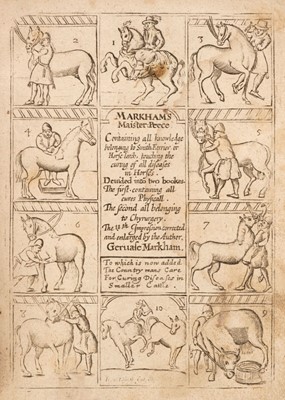 2
3
MARKHAM'S
Maister-Peece
Contayning all knowledge
belonging to Smith, Farrier or
Horse-leech, touching the
curing of all diseases
in Horses.
Devided into two bookes.
The first containing all
cures Physicall.
The second all belonging
to Chyrurgery.
The 13th Impression corrected
and enlarged by the Author,
Gervase Markham.
To which is now added
The Country mans Care
For Curing Diseases in
Smaller Cattle.
4
5
6
7
8
10
9